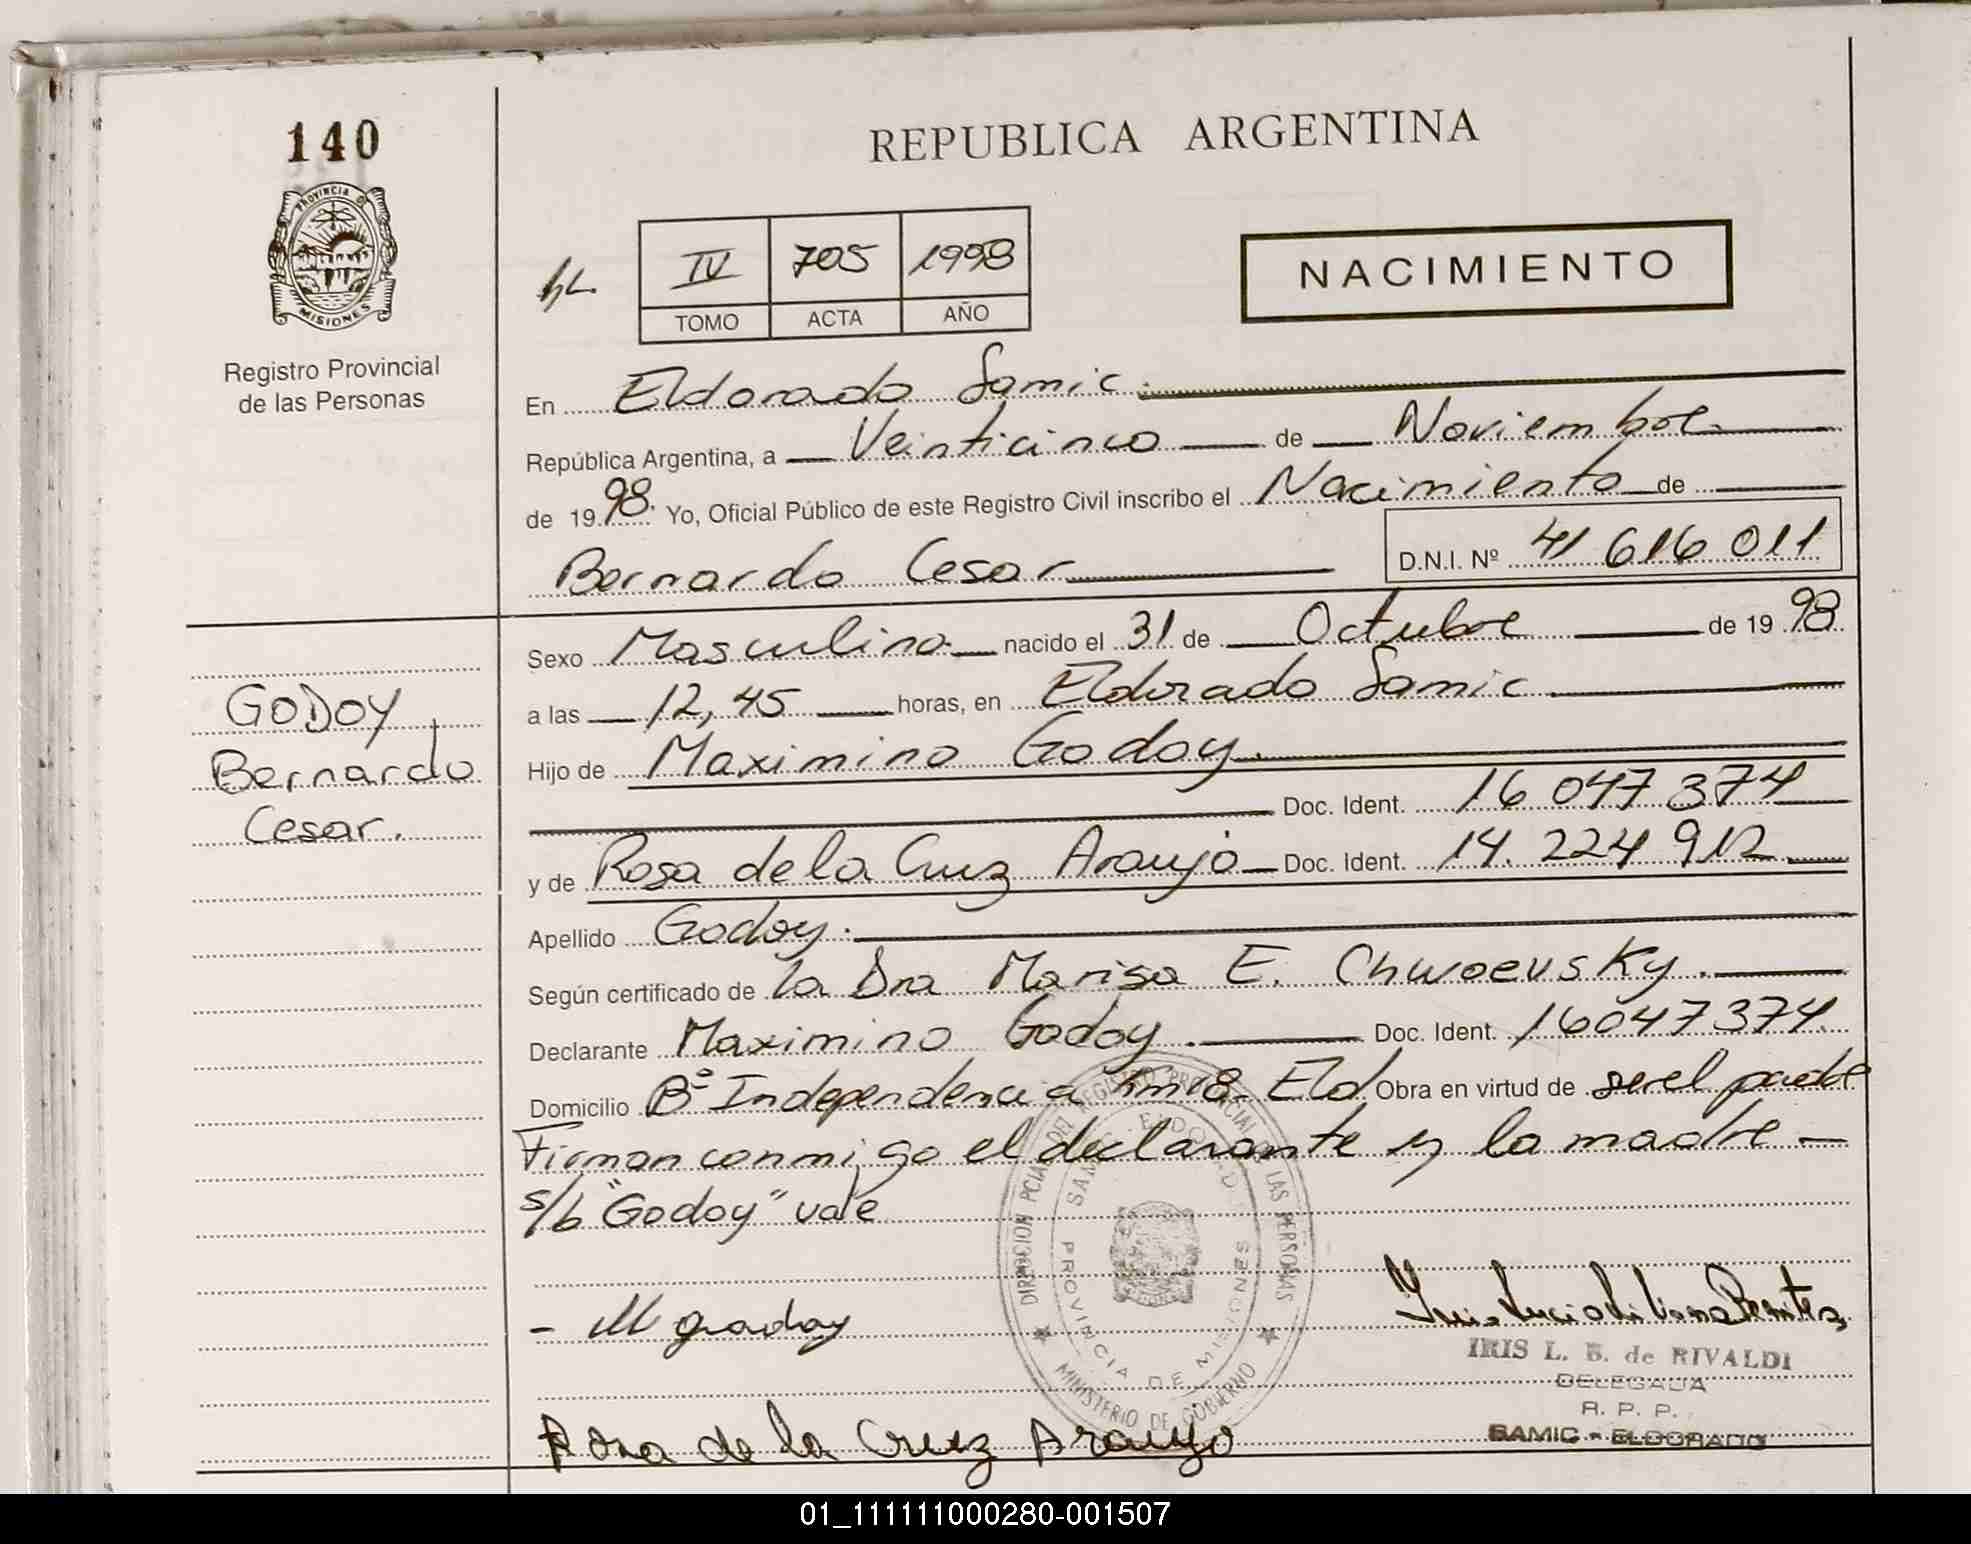 140
PROVINCIA D
MISIONES
Registro Provincial
de las Personas
REPUBLICA ARGENTINA
IV 705 1998
TOMO ACTA AÑO
NACIMIENTO
En Eldorado Samic.
República Argentina, a Veinticinco de Noviembre
de 1998. Yo, Oficial Público de este Registro Civil inscribo el Nacimiento de
Bernardo Cesar D.N.I. Nº 41 616 011
Sexo Masculino nacido el 31 de Octubre de 1998
a las 12,45 horas, en Eldorado Samic
Hijo de Maximino Godoy.
Doc. Ident. 16 047 374
y de Rosa de la Cruz Araujo Doc. Ident. 14.224 912
Apellido Godoy.
Según certificado de la Dra Marisa E. Chwoevsky.
Declarante Maximino Godoy. Doc. Ident. 16047374
Domicilio Bº Independencia km 8 Eld Obra en virtud de ser el padre
Firman conmigo el declarante y la madre -
s/b "Godoy" vale
GODOY,
Bernardo
Cesar.
DIRECCION PCIAL DEL REGISTRO PROVINCIAL DE LAS PERSONAS
SAMIC - ELDORADO
PROVINCIA DE MISIONES
MINISTERIO DE GOBIERNO
- M godoy
IRIS L. B. de RIVALDI
DELEGADA
R. P. P.
SAMIC - ELDORADO
Rosa de la Cruz Araujo
01_111111000280-001507